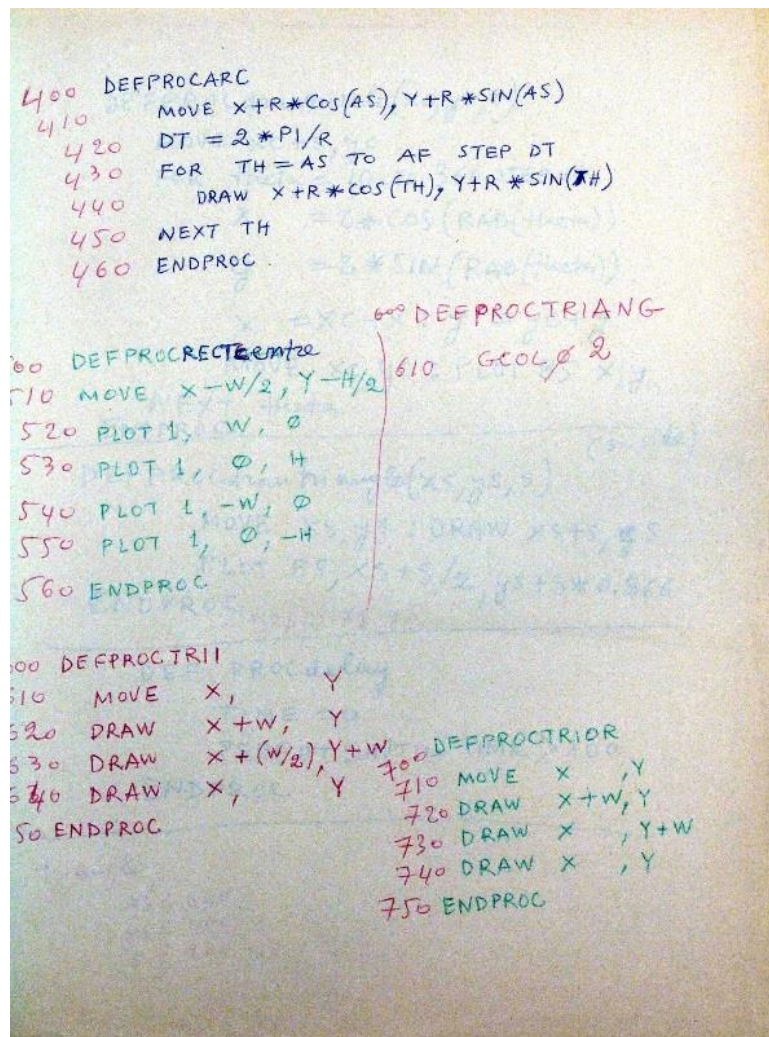 400 DEFPROCARC
410 MOVE X+R*COS(AS), Y+R*SIN(AS)
420 DT = 2*PI/R
430 FOR TH=AS TO AF STEP DT
440 DRAW X+R*COS(TH), Y+R*SIN(TH)
450 NEXT TH
460 ENDPROC
00 DEFPROCRECTcentre
510 MOVE X-W/2, Y-H/2
520 PLOT 1, W, Ø
530 PLOT 1, Ø, H
540 PLOT 1, -W, Ø
550 PLOT 1, Ø, -H
560 ENDPROC
600 DEFPROCTRIANG
610 GCOLØ 2
00 DEFPROCTRII
10 MOVE X, Y
20 DRAW X+W, Y
630 DRAW X+(W/2), Y+W
640 DRAW X, Y
50 ENDPROC
700 DEFPROCTRIOR
710 MOVE X ,Y
720 DRAW X+W, Y
730 DRAW X , Y+W
740 DRAW X , Y
750 ENDPROC